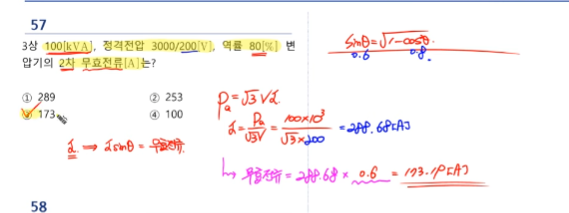 57
3상 100[kVA], 정격전압 3000/200[V], 역률 80[%] 변
압기의 2차 무효전류[A]는?
① 289
② 253
③ 173
④ 100
sinθ = √1-cos²θ
0.6 0.8
Pa = √3 V I
I = Pa/√3V = 100×10³/√3×200 = 288.68[A]
I ⇒ I sinθ = 무효전류
↳ 무효전류 = 288.68 × 0.6 = 173.19[A]
58